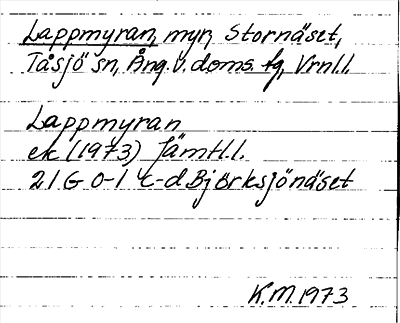 Lappmyran, myr, Stornäset,
Tåsjö sn, Ång. v. doms fg, Vrnl.l.
Lappmyran
ek (1973) Jämtl.l.
21G 0-1 c-d Björksjönäset
K.M. 1973